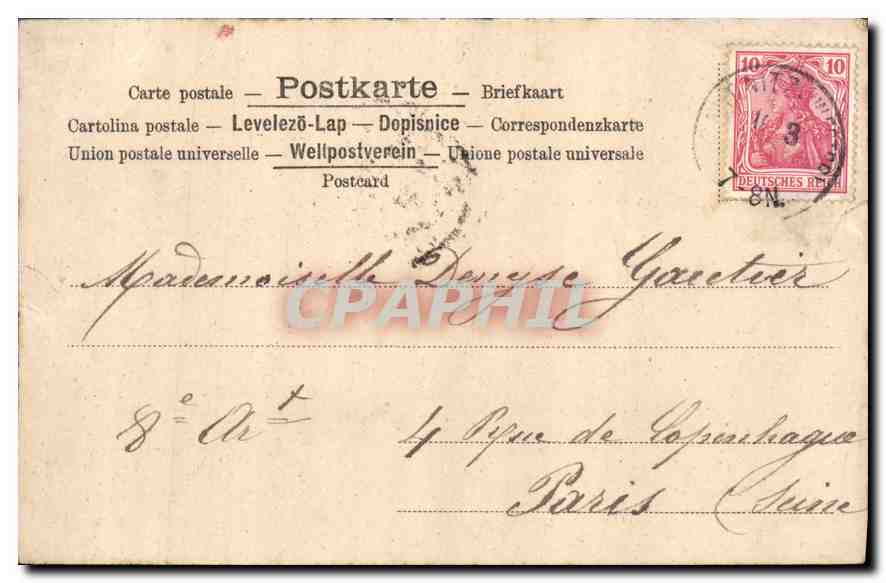 Carte postale — Postkarte — Briefkaart
Cartolina postale — Levelező-Lap — Dopisnice — Correspondenzkarte
Union postale universelle — Weltpostverein — Unione postale universale
Postcard
10 10
3
DEUTSCHES REICH
7-8N.
Mademoiselle Denyse Gautier
CPAPHIL
8e Art
4 Rue de Copenhague
Paris Seine